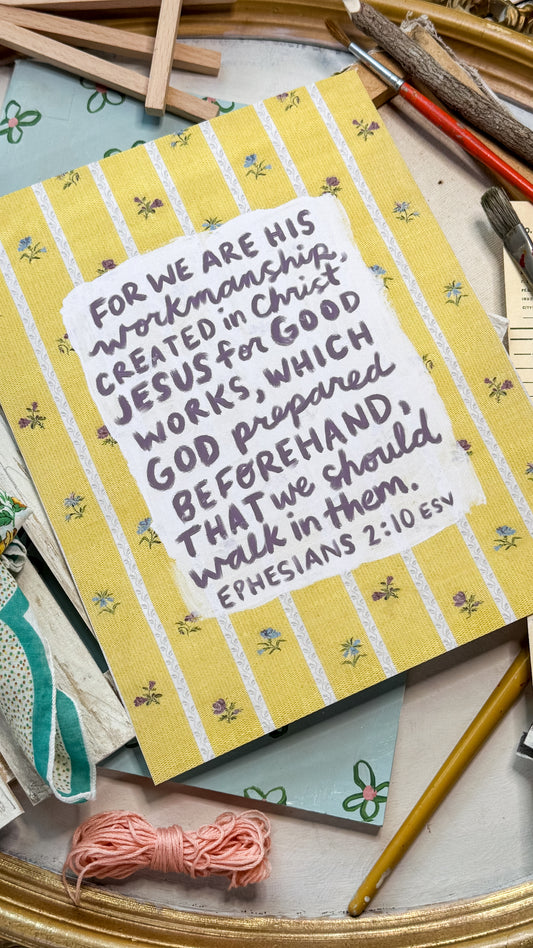 FOR WE ARE HIS
workmanship,
CREATED in Christ
JESUS for GOOD
WORKS, WHICH
GOD prepared
BEFOREHAND,
THAT we should
walk in them.
EPHESIANS 2:10 ESV